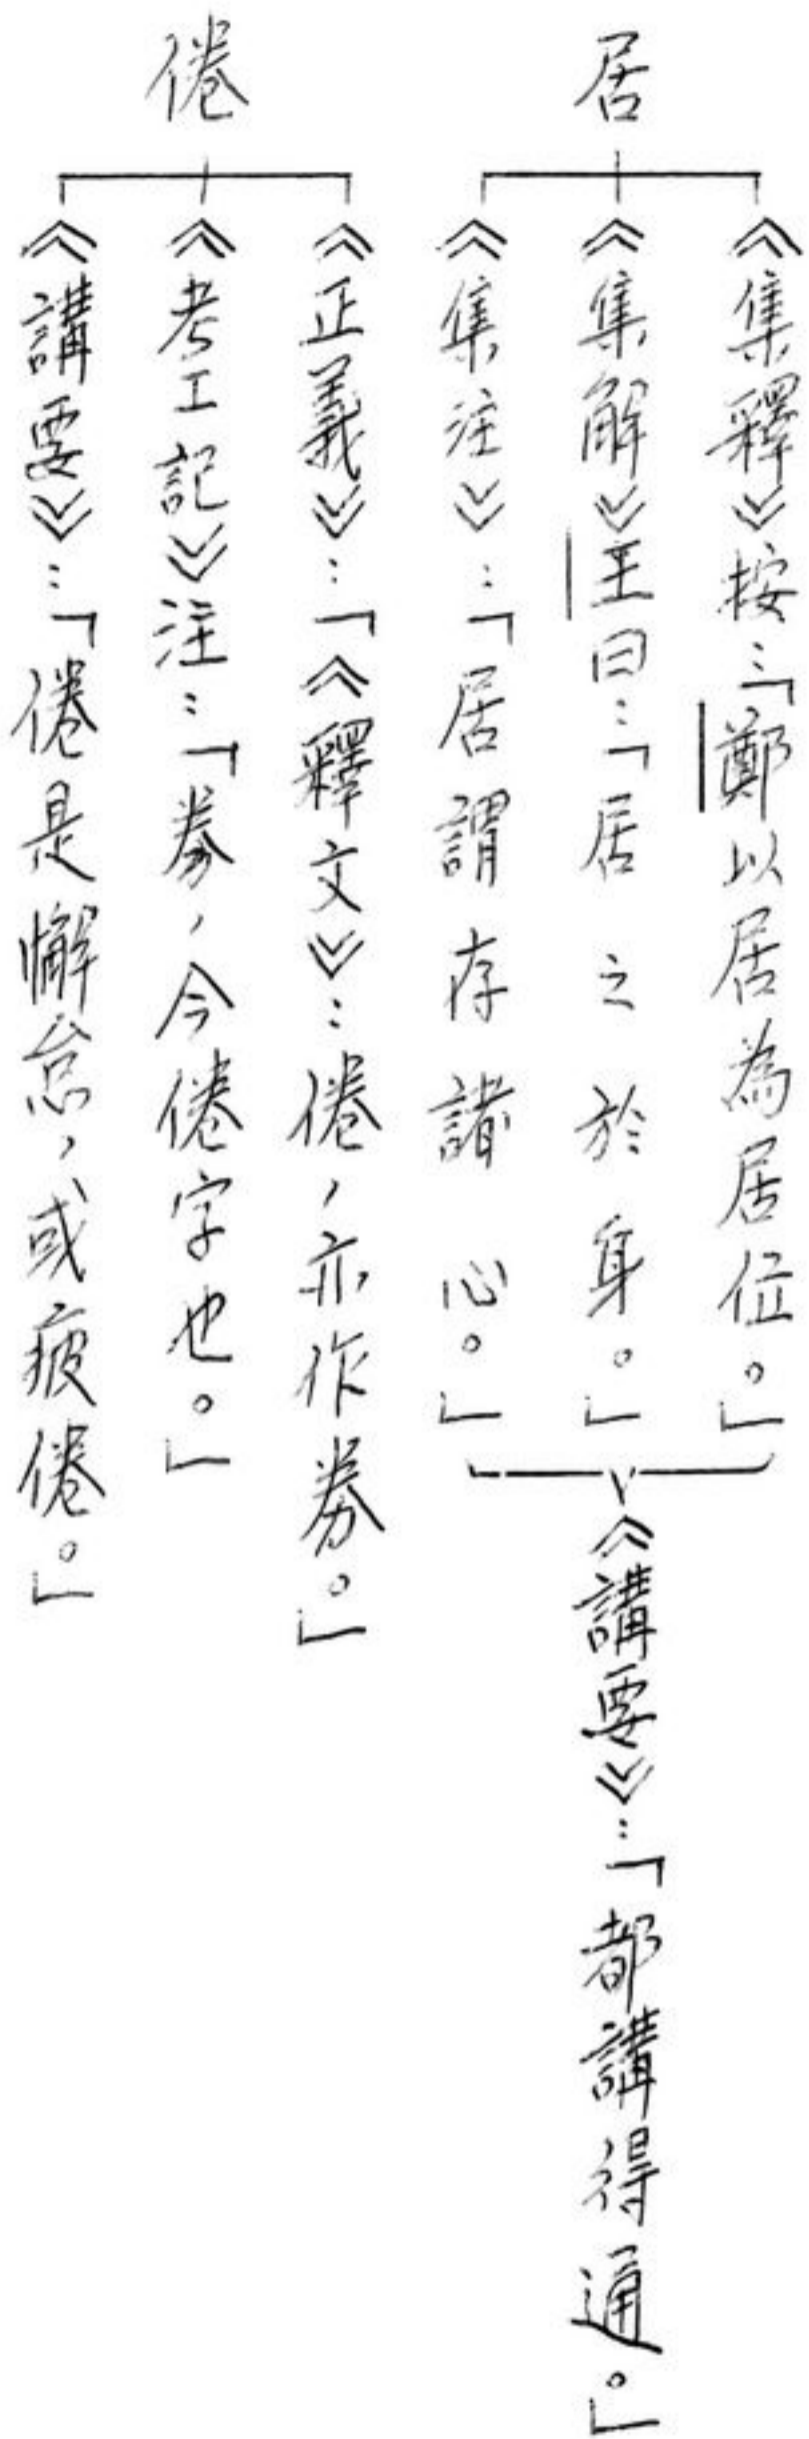 居
《集釋》按：「鄭以居為居位。」
《集解》王曰：「居之於身。」
《集注》：「居謂存諸心。」
《講要》：「都講得通。」
倦
《正義》：「《釋文》：倦，亦作劵。」
《考工記》注：「劵，今倦字也。」
《講要》：「倦是懈怠，或疲倦。」